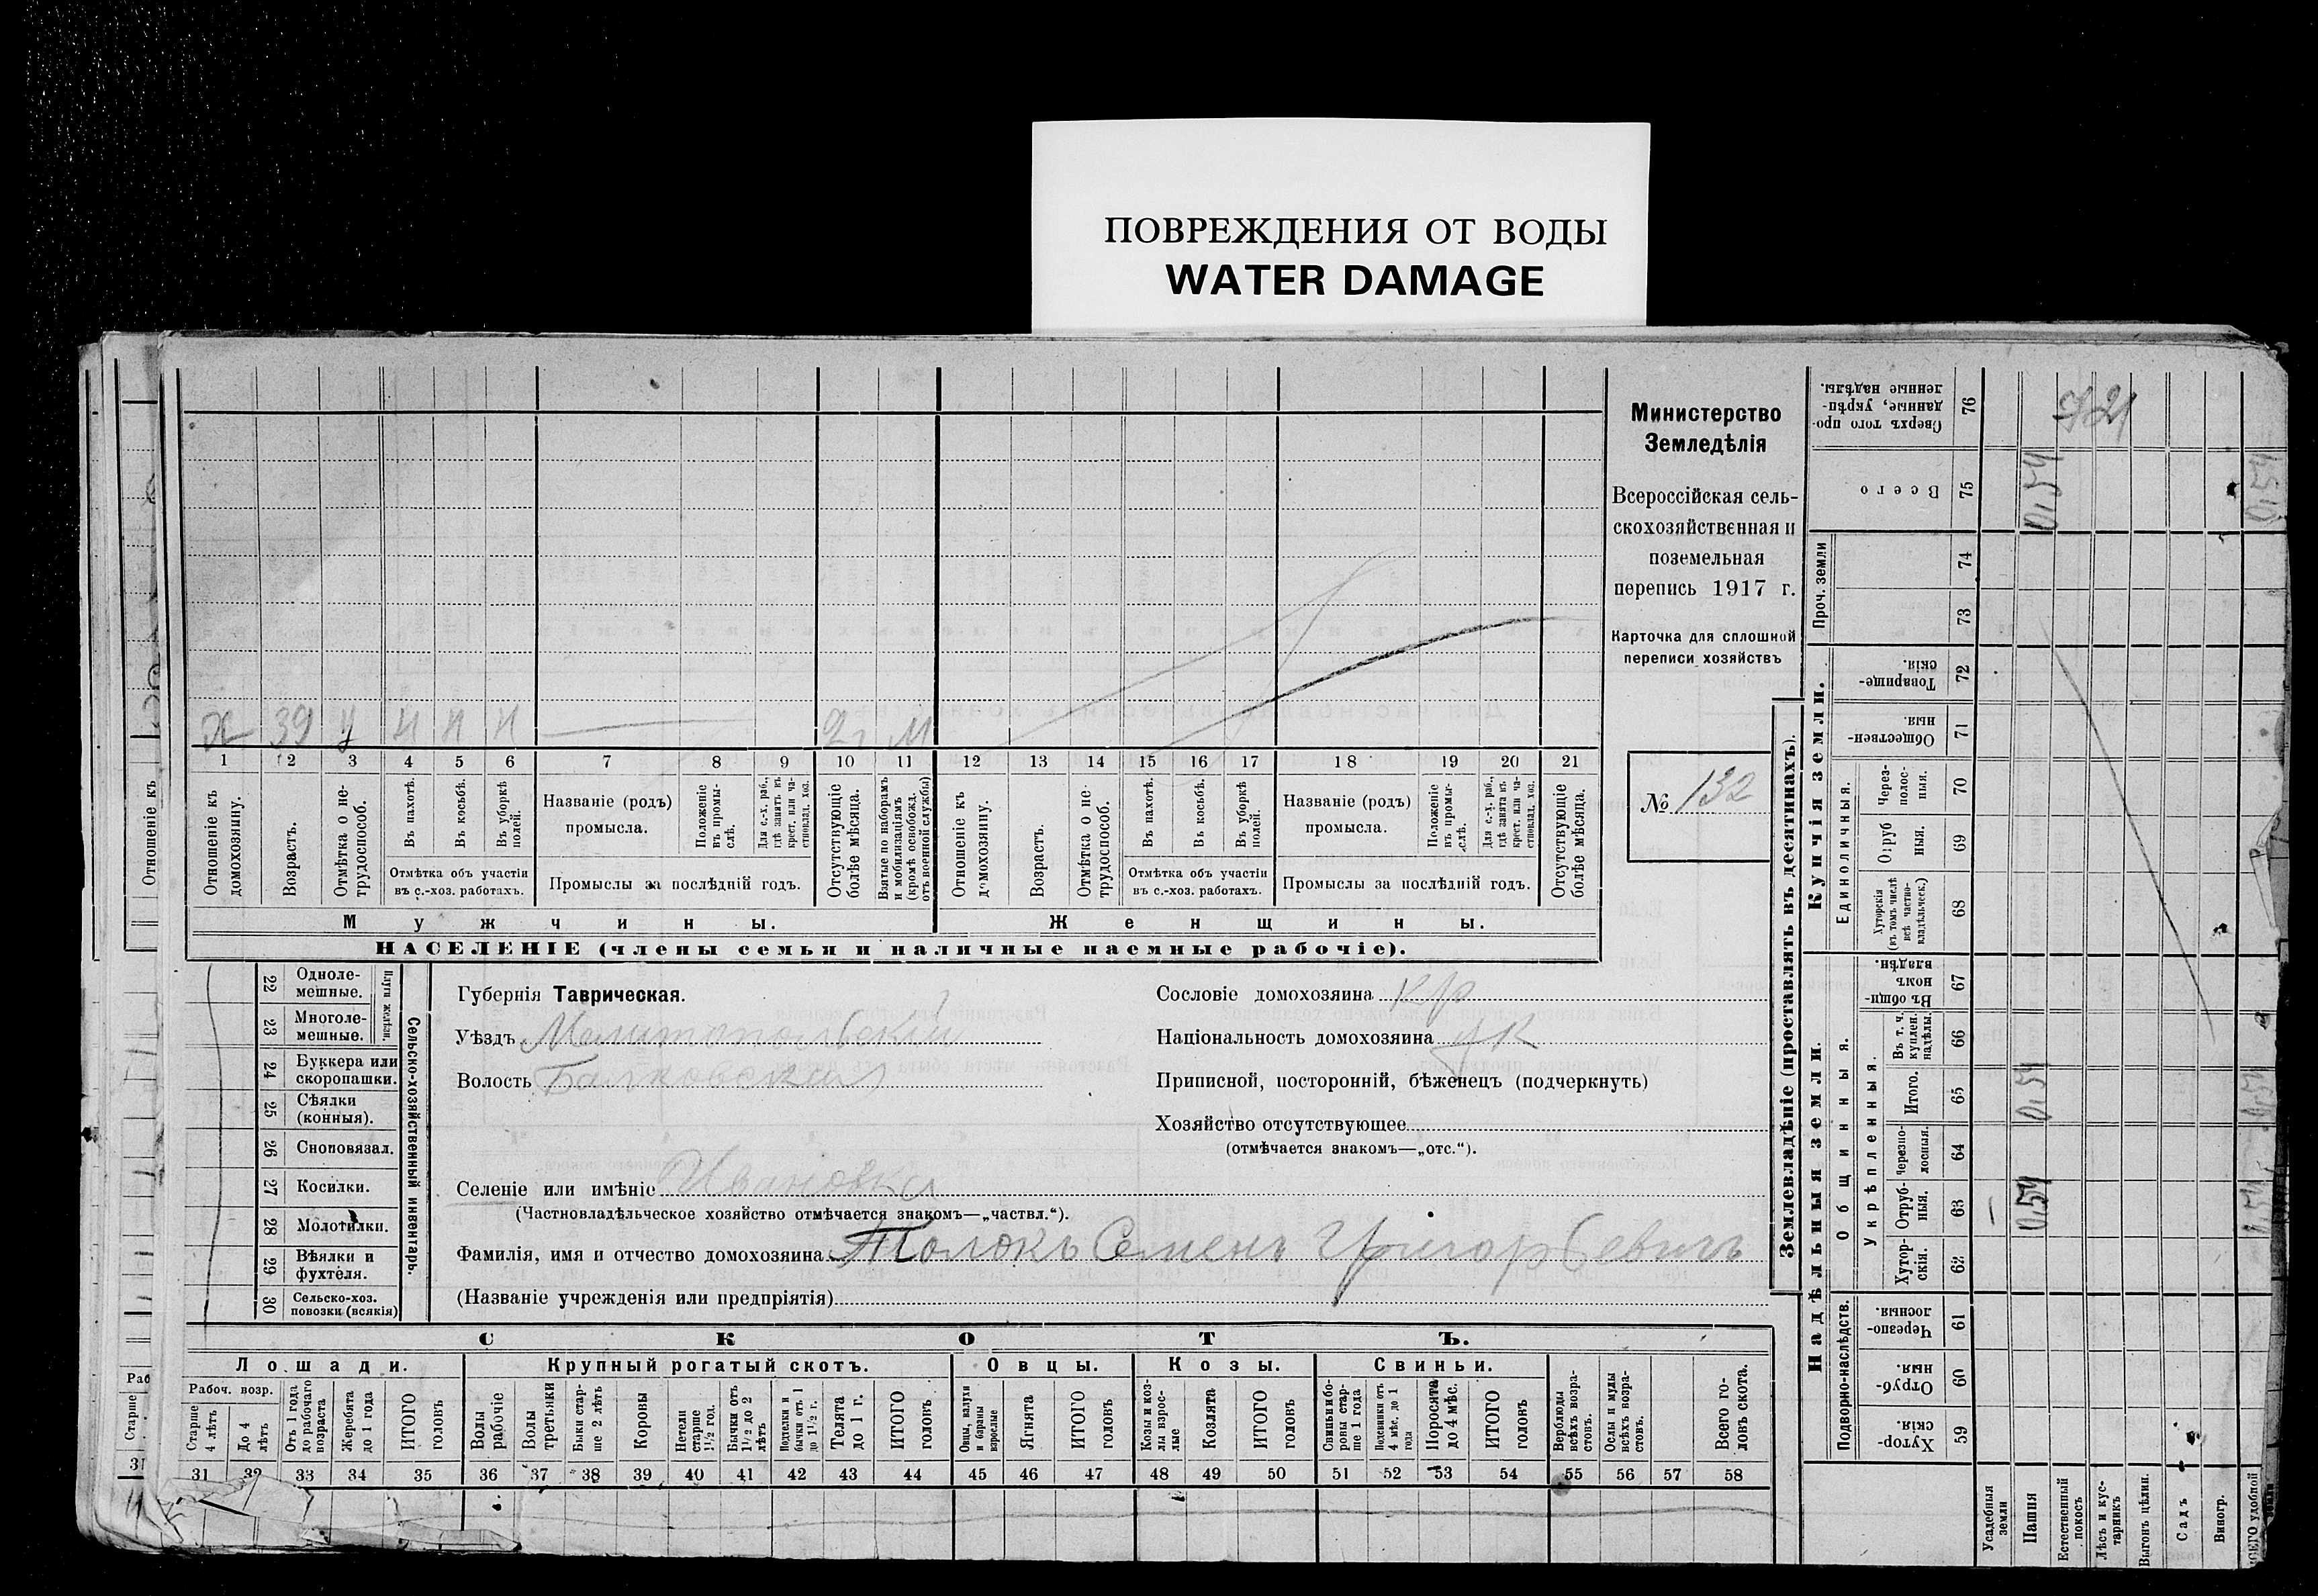 ПОВРЕЖДЕНИЯ ОТ ВОДЫ
WATER DAMAGE
Министерство
Земледѣлія
Всероссійская сель-
скохозяйственная и
поземельная
перепись 1917 г.
Карточка для сплошной
переписи хозяйствъ
№ 132
Х 39 У Н Н Н
1 2 3 4 5 6 7 8 9 10 11 12 13 14 15 16 17 18 19 20 21
Отношеніе къ домохозяину.
Возрастъ.
Отмѣтка о не-трудоспособ.
Въ пахотѣ.
Въ косьбѣ.
Въ уборкѣ полей.
Отмѣтка объ участіи
въ с.-хоз. работахъ.
Названіе (родъ)
промысла.
Положеніе въ промы-слѣ.
Для с.-х. раб., гдѣ занятъ въ крест. или ча-стновлад. хоз.
Промыслы за послѣдній годъ.
Отсутствующіе болѣе мѣсяца.
Взятые по наборамъ и мобилизаціямъ (кромѣ освобожд. отъ военной службы)
Отношеніе къ домохозяину.
Возрастъ.
Отмѣтка о не-трудоспособ.
Въ пахотѣ.
Въ косьбѣ.
Въ уборкѣ полей.
Отмѣтка объ участіи
въ с.-хоз. работахъ.
Названіе (родъ)
промысла.
Положеніе въ промы-слѣ.
Для с.-х. раб., гдѣ занята въ крест. или ча-стновлад. хоз.
Промыслы за послѣдній годъ.
Отсутствующіе болѣе мѣсяца.
Мужчины.
Женщины.
НАСЕЛЕНІЕ (члены семьи и наличные наемные рабочіе).
22 Одноле-мешные.
23 Многоле-мешные.
Плуги желѣзн.
24 Буккера или скоропашки.
25 Сѣялки (конныя).
26 Сноповязал.
27 Косилки.
28 Молотилки.
29 Вѣялки и фухтеля.
30 Сельско-хоз. повозки (всякія)
Сельско-хозяйственный инвентарь.
Губернія Таврическая.
Уѣздъ Мелитопольскій
Волость Балковская
Селеніе или имѣніе Ивановка
(Частновладѣльческое хозяйство отмѣчается знакомъ—„частвл.“).
Фамилія, имя и отчество домохозяина Толокъ Семенъ Григорьевичъ
(Названіе учрежденія или предпріятія)
Сословіе домохозяина кр
Національность домохозяина ук
Приписной, посторонній, бѣженецъ (подчеркнуть)
Хозяйство отсутствующее
(отмѣчается знакомъ—„отс.“).
СКОТЪ.
Лошади.
Крупный рогатый скотъ.
Овцы.
Козы.
Свиньи.
Рабоч. возр.
Старше 4 лѣтъ
До 4 лѣтъ
Отъ 1 года до рабочаго возраста
Жеребята до 1 года
ИТОГО головъ
Волы рабочіе
Волы третьяки
Быки стар-ше 2 лѣтъ
Коровы
Нетели старше 1½ год.
Бычки отъ 1½ до 2 лѣтъ
Подтелки и бычки отъ 1 до 1½ г.
Телята до 1 г.
ИТОГО головъ
Овцы, валухи и бараны взрослые
Ягнята
ИТОГО головъ
Козы и коз-лы взрос-лые
Козлята
ИТОГО головъ
Свиньи и бо-ровы стар-ше 1 года
Подсвинки отъ 4 мѣс. до 1 года
Поросята до 4 мѣс.
ИТОГО головъ
Верблюды всѣхъ возра-стовъ.
Ослы и мулы всѣхъ возра-стовъ.
Всего го-ловъ скота.
31 32 33 34 35 36 37 38 39 40 41 42 43 44 45 46 47 48 49 50 51 52 53 54 55 56 57 58
Землевладѣніе (проставлять въ десятинахъ).
Купчія земли.
Надѣльныя земли.
Сверхъ того про-данные, укрѣп-ленные надѣлы. 76
Всего 75 0,54 0,54
Проч. земли 74 73
Товарище-скія. 72
Обществен-ныя. 71
Единоличныя.
Через-полос-ныя. 70
Отруб-ныя. 69
Хуторскія (въ томъ числѣ всѣ частно-владѣльческ.) 68
Общинныя.
Въ общи-номъ владѣн. 67
Укрѣпленныя.
Въ т. ч. куплен. надѣлы. 66
Итого. 65 0,54 0,54
Черезпо-лосныя. 64
Отруб-ныя. 63 — 0,54 0,54
Хутор-скія. 62
Подворно-наслѣдств.
Черезпо-лосныя. 61
Отруб-ныя. 60
Хутор-скія. 59
Усадебныя земли
Пашня
Естественный покосъ
Лѣсъ и кус-тарникъ
Выгонъ цѣлин.
Садъ
Виногр.
Отношеніе къ
Старше